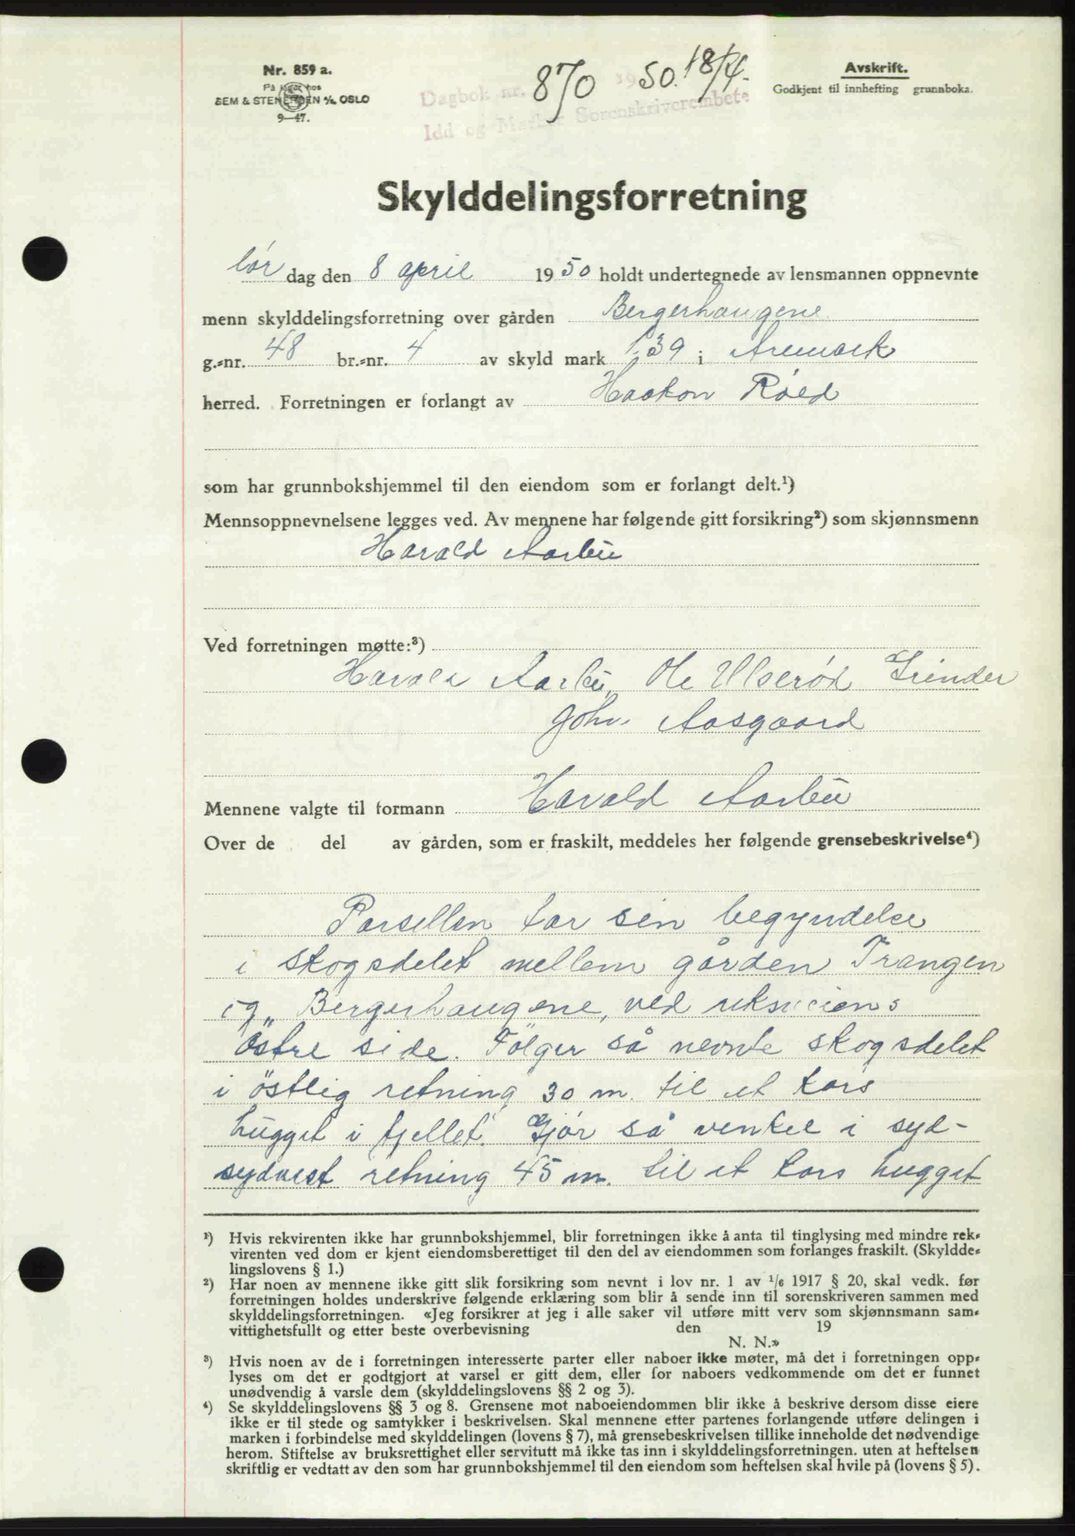 Nr. 859 a.
På lager hos
SEM & STENERSEN A/S OSLO
9-47.
Dagbok nr. 870 1950. 18/4.
Idd og Marker Sorenskriverembete
Avskrift.
Godkjent til innhefting grunnboka.
Skylddelingsforretning
lør dag den 8 april 1950 holdt undertegnede av lensmannen oppnevnte
menn skylddelingsforretning over gården Bergerhaugene
g.-nr. 48 br.-nr. 4 av skyld mark 1.39 i Aremark
herred. Forretningen er forlangt av Haakon Röed
som har grunnbokshjemmel til den eiendom som er forlangt delt.¹)
Mennsoppnevnelsene legges ved. Av mennene har følgende gitt forsikring²) som skjønnsmenn
Harald Aarbu
Ved forretningen møtte:³)
Harald Aarbu, Ole Ulserød Grinder
Joh. Aasgaard
Mennene valgte til formann Harald Aarbu
Over de del av gården, som er fraskilt, meddeles her følgende grensebeskrivelse⁴)
Parsellen tar sin begyndelse
i skogsdelet mellem gården Trangen
og Bergerhaugene, ved
östre side. Fölger så nevnte skogsdelet
i östlig retning 30 m. til et kors
hugget i fjellet. Gjör så vinkel i syd-
sydvest retning 45 m. til et kors hugget
¹) Hvis rekvirenten ikke har grunnbokshjemmel, blir forretningen ikke å anta til tinglysing med mindre rek-
virenten ved dom er kjent eiendomsberettiget til den del av eiendommen som forlanges fraskilt. (Skyldde-
lingslovens § 1.)
²) Har noen av mennene ikke gitt slik forsikring som nevnt i lov nr. 1 av 1/6 1917 § 20, skal vedk. før
forretningen holdes underskrive følgende erklæring som blir å sende inn til sorenskriveren sammen med
skylddelingsforretningen. «Jeg forsikrer at jeg i alle saker vil utføre mitt verv som skjønnsmann sam-
vittighetsfullt og etter beste overbevisning den 19
N. N.»
³) Hvis noen av de i forretningen interesserte parter eller naboer ikke møter, må det i forretningen opp-
lyses om det er godtgjort at varsel er gitt dem, eller for naboers vedkommende om det er funnet
unødvendig å varsle dem (skylddelingslovens §§ 2 og 3).
⁴) Se skylddelingslovens §§ 3 og 8. Grensene mot naboeiendommen blir ikke å beskrive dersom disse eiere
ikke er til stede og samtykker i beskrivelsen. Skal mennene etter partenes forlangende utføre delingen i
marken i forbindelse med skylddelingen (lovens § 7), må grensebeskrivelsen tillike inneholde det nødvendige
herom. Stiftelse av bruksrettighet eller servitutt må ikke tas inn i skylddelingsforretningen. uten at heftelsen
skriftlig er vedtatt av den som har grunnbokshjemmel til den eiendom som heftelsen skal hvile på (lovens § 5).